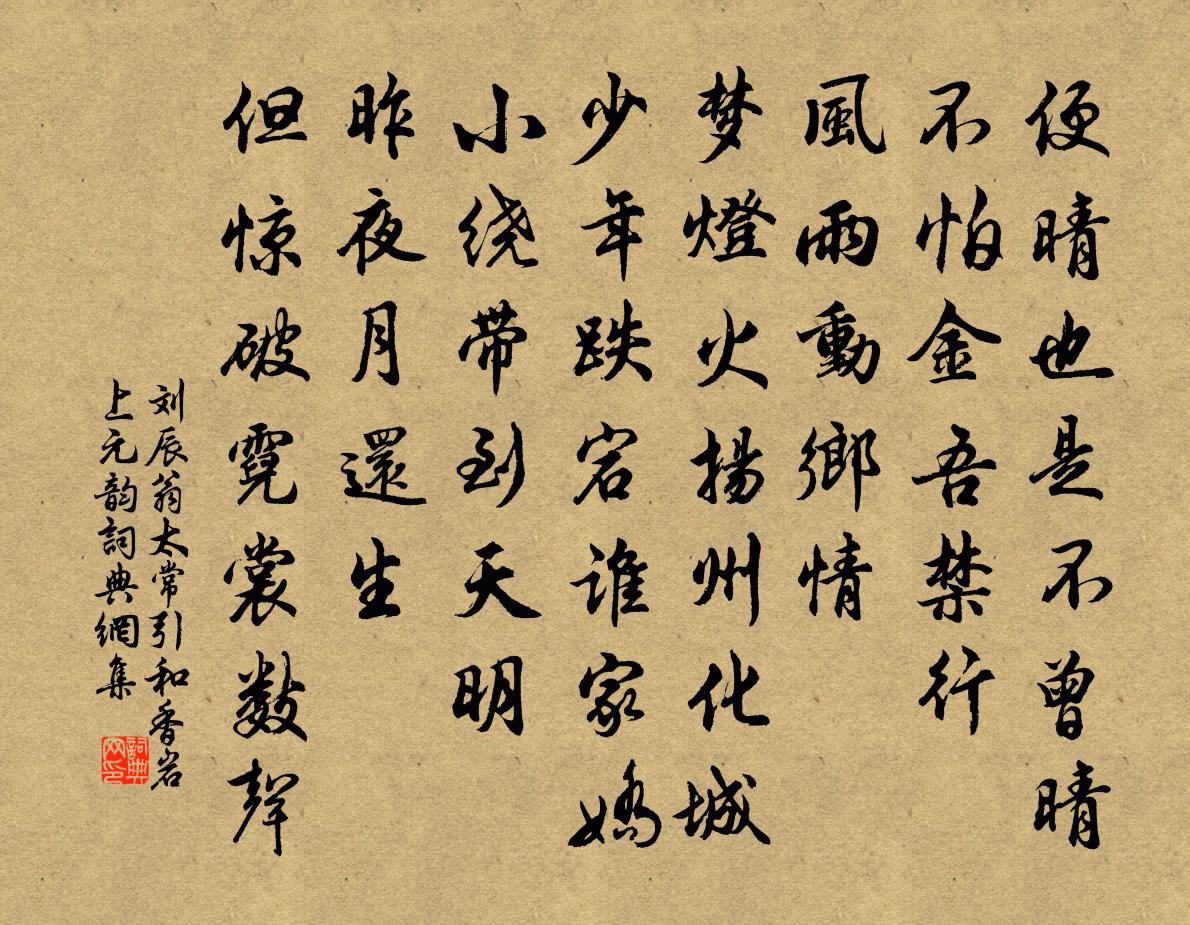 便晴也是不曾晴
不怕金吾禁行
風雨動鄉情
梦燈火揚州化城
少年跌宕谁家嬌
小绕带到天明
昨夜月還生
但惊破霓裳數聲
刘辰翁太常引和香岩
上元韵詞典網集
詞典网印